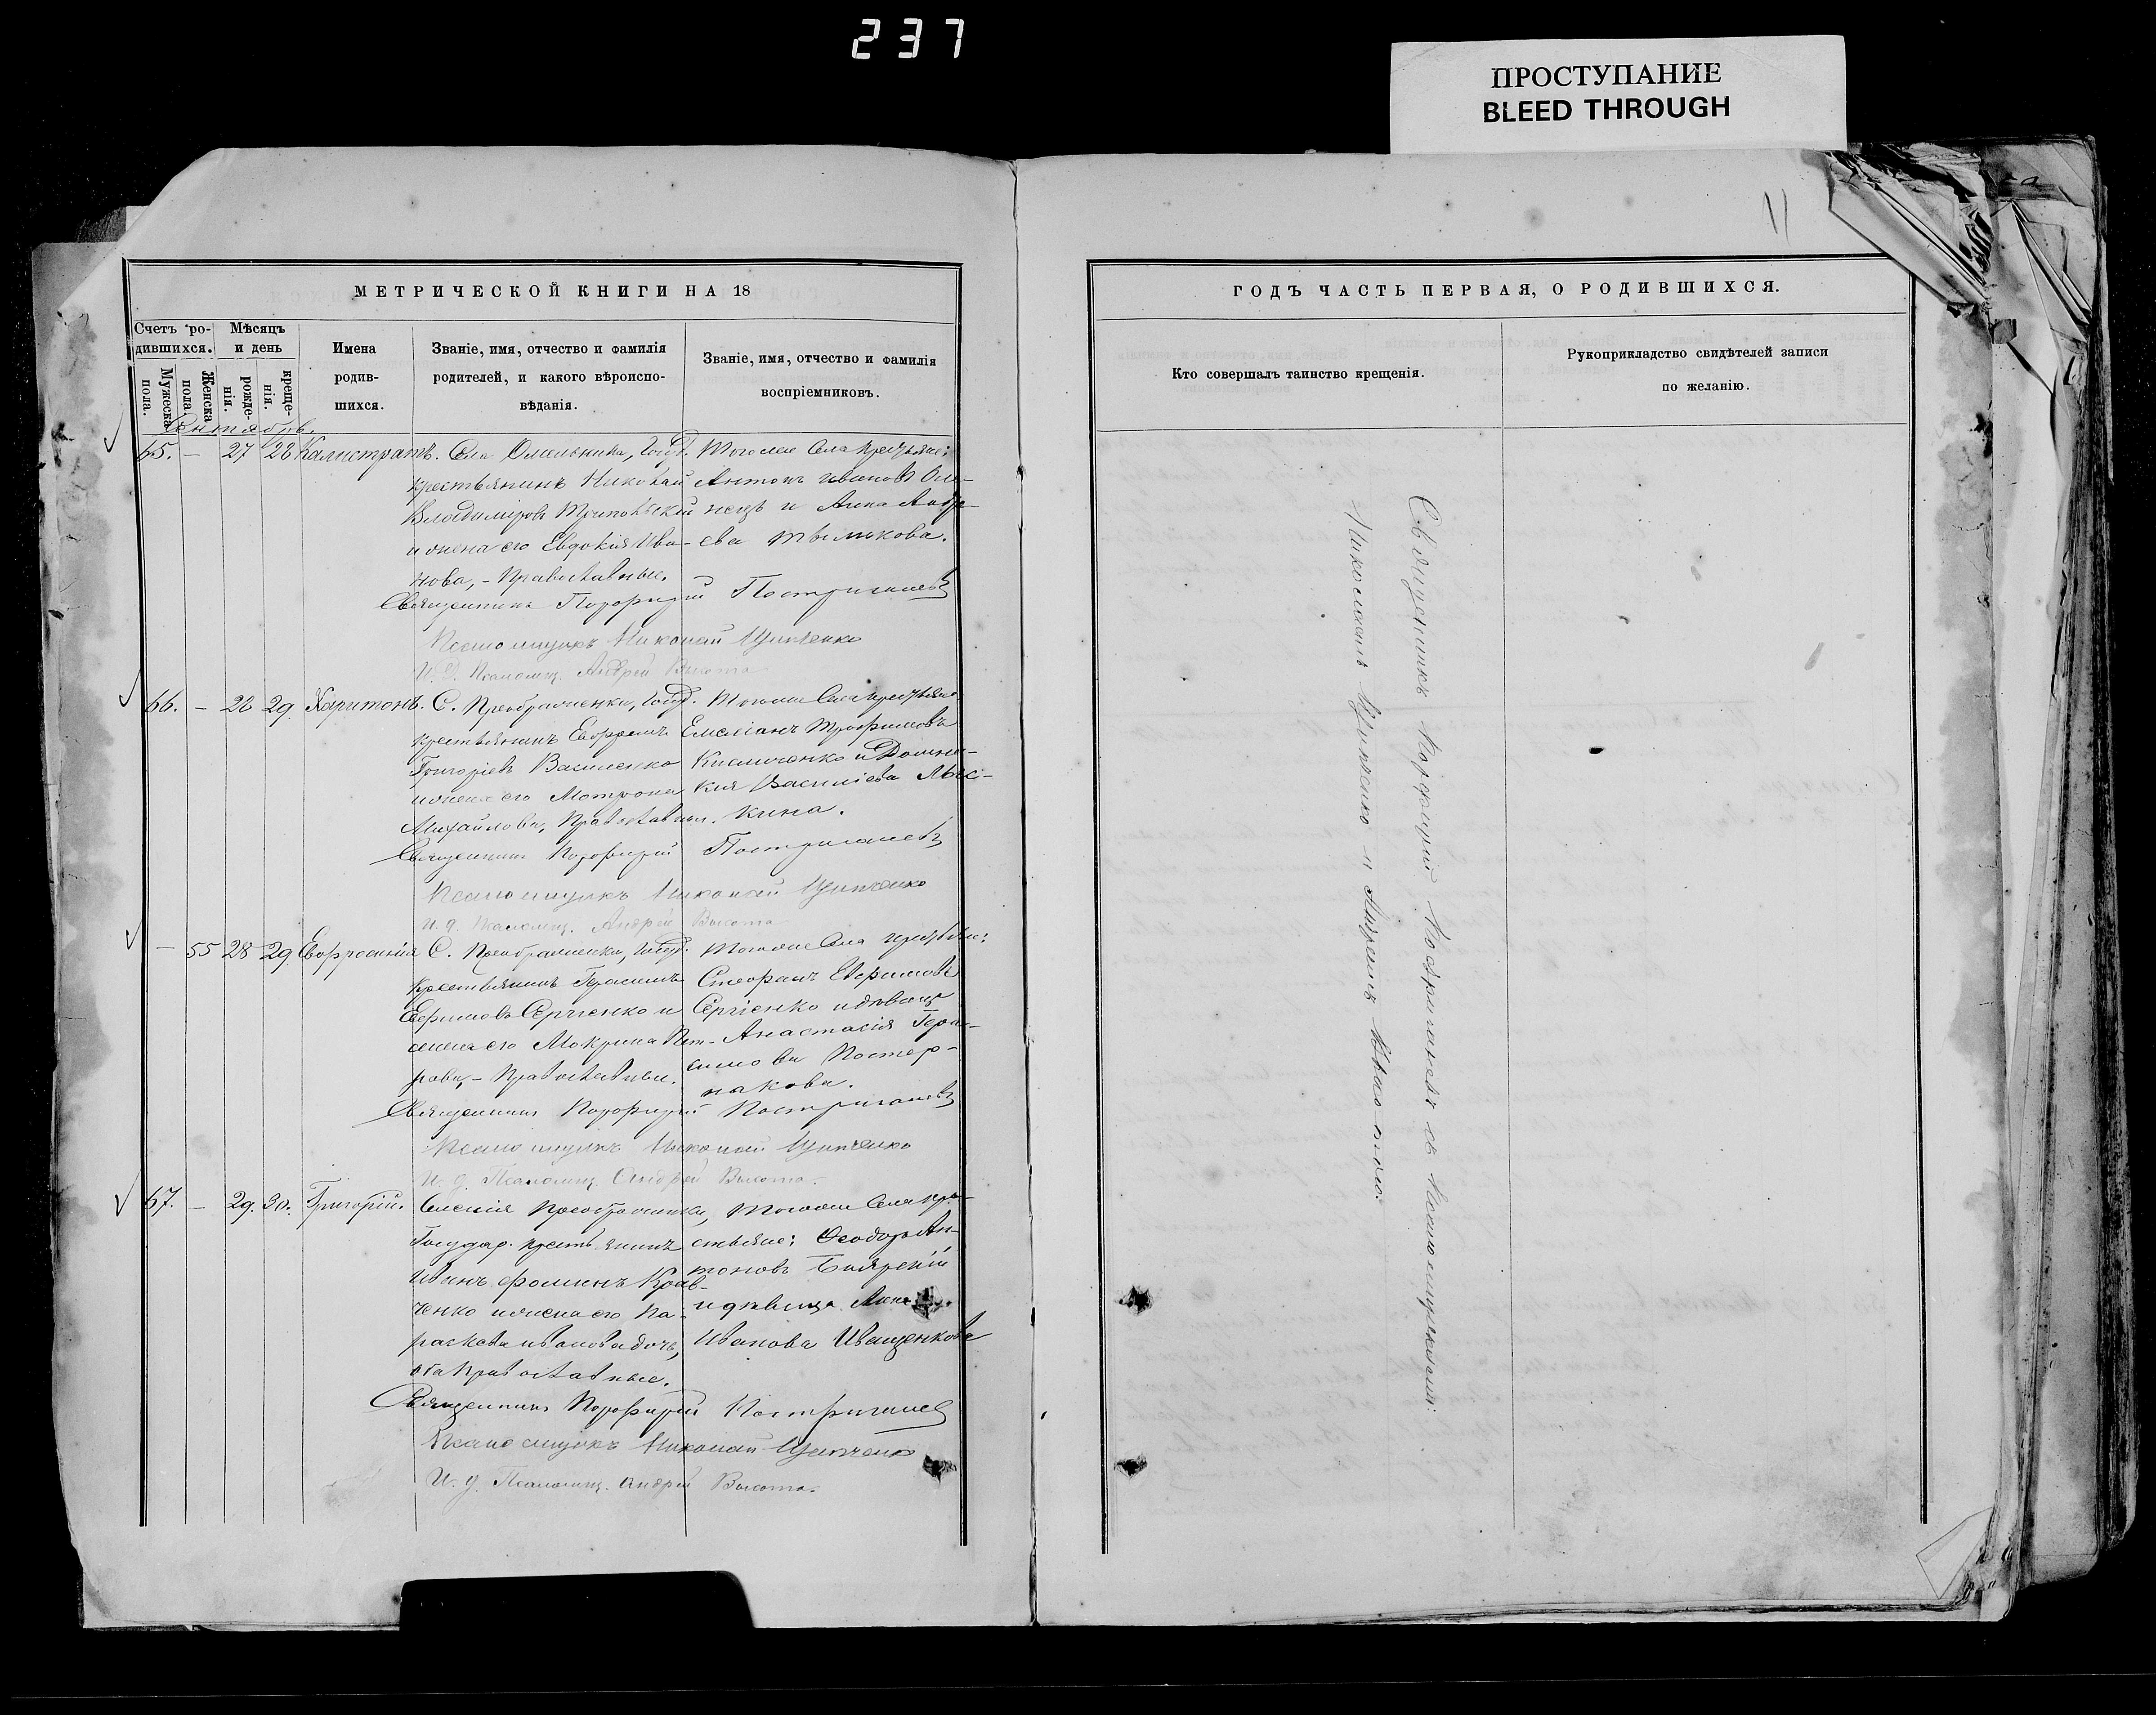 237
ПРОСТУПАНИЕ
BLEED THROUGH
11
МЕТРИЧЕСКОЙ КНИГИ НА 18
Счетъ ро-
дившихся.
Мужеска
пола.
Женска
пола.
Мѣсяцъ
и день
рожде-
нія.
креще-
нія.
Имена
родив-
шихся.
Званіе, имя, отчество и фамилія
родителей, и какого вѣроиспо-
вѣданія.
Званіе, имя, отчество и фамилія
воспріемниковъ.
Сентябрь.
65. — 27 28 Калистратъ.
Села Ольника, Госуд.
крестьянинъ Николай
Владиміровъ
и жена его Евдокія Ива-
нова, - Православные.
Тогоже Села крестьяне:
Антонъ Ивановъ
и Анна Андре-
ева
Священникъ Порфирий Постригачевъ
Псаломщикъ Николай Ципченко
И. д. Псаломщ. Андрей Высота
66. — 26 29. Харитонъ.
С. Преображенки, Госуд.
крестьянинъ
Григоріевъ Василенко
и жена его Мотрона
Михайлова, Православны.
Тогоже Села крестьяне
Емеліанъ Трофимовъ
Кисличенко и Домни-
кія Василіева Лыс-
кина.
Священникъ Порфирий Постригачевъ
Псаломщикъ Николай Ципченко
И. д. Псаломщ. Андрей Высота
— 55 28 29. Евфросинія
С. Преображенки, Госуд.
крестьянинъ Герасимъ
Ефимовъ Сергіенко и
жена его Мокрина Пет-
рова, - Православны.
Тогоже Села крестьяне:
Стефанъ Евфимовъ
Сергіенко и дѣвица
Анастасія Гера-
симова Постер-
накова.
Священникъ Порфирий Постригачевъ
Псаломщикъ Николай Ципченко
И. д. Псаломщ. Андрей Высота.
67. — 29. 30. Григорій.
Селенія Преображенки,
Государ. крестьянинъ
Иванъ Фоминъ Крав-
ченко и жена его Па-
раскева Иванова дочь,
оба Православные.
Тогоже Села кре-
стьяне: Ѳеодоръ Ан-
тоновъ Боярскій
и дѣвица Анна
Иванова Иващенкова
Священникъ Порфирий Постригачев
Псаломщикъ Николай Ципченко
И. д. Псаломщ. Андрей Высота.
ГОДЪ ЧАСТЬ ПЕРВАЯ, О РОДИВШИХСЯ.
Кто совершалъ таинство крещенія.
Рукоприкладство свидѣтелей записи
по желанію.
Священникъ Порфирій Постригачевъ съ Псаломщиками:
Николаемъ Ципченко и Андреемъ Высотою.